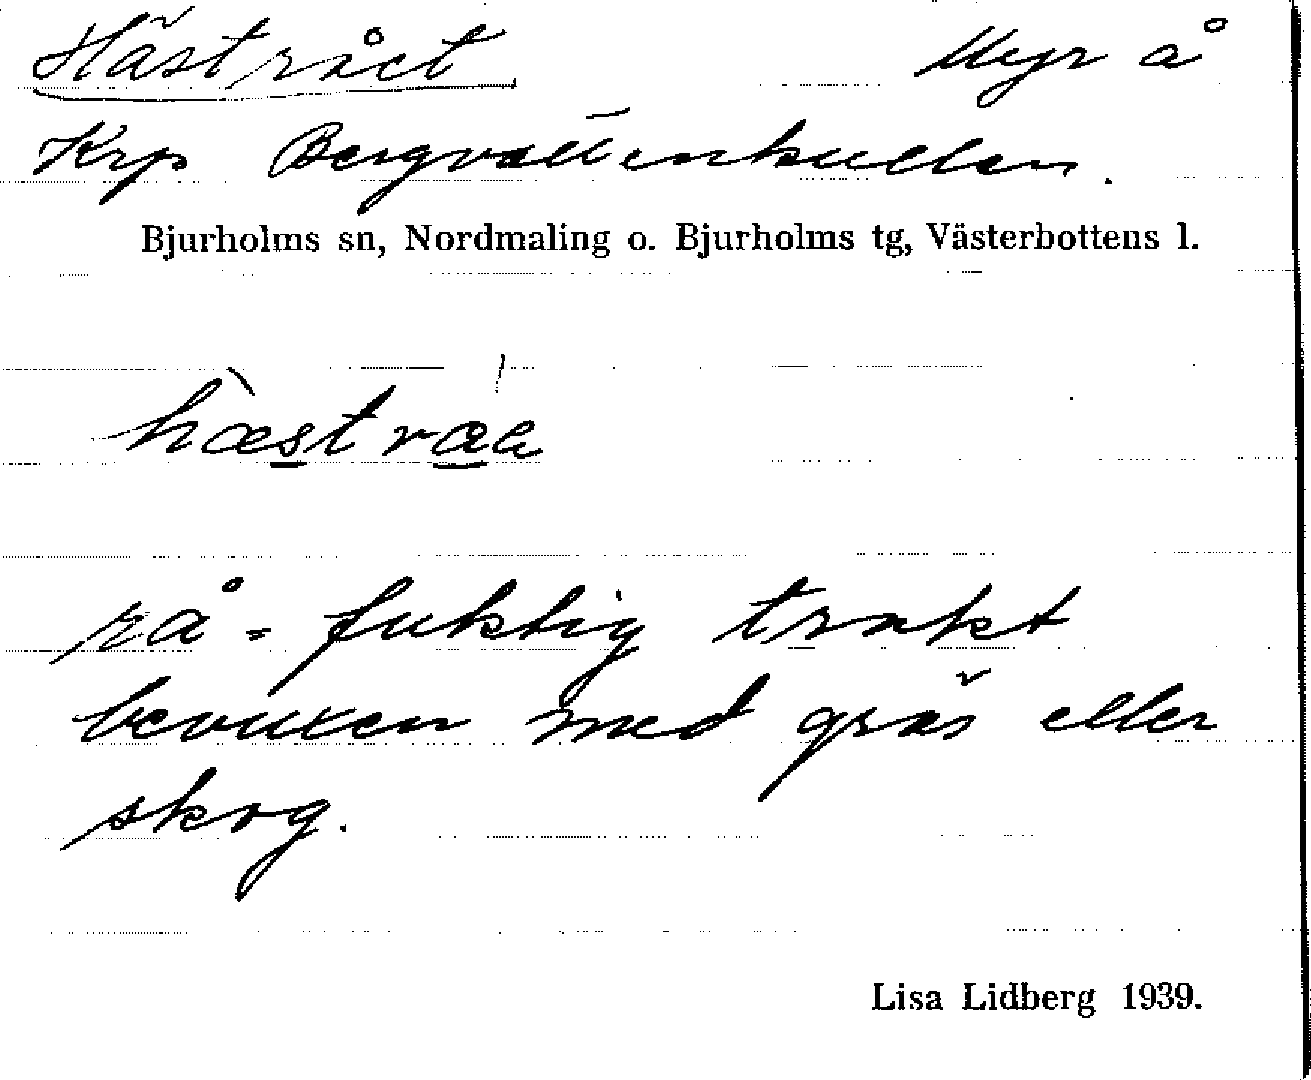 Hästrået Myr å
Krp Bergvattenkullen.
Bjurholms sn, Nordmaling o. Bjurholms tg, Västerbottens l.
hæ̀stræ̍a
rå = fuktig trakt
bevuxen med gräs eller
skog.
Lisa Lidberg 1939.